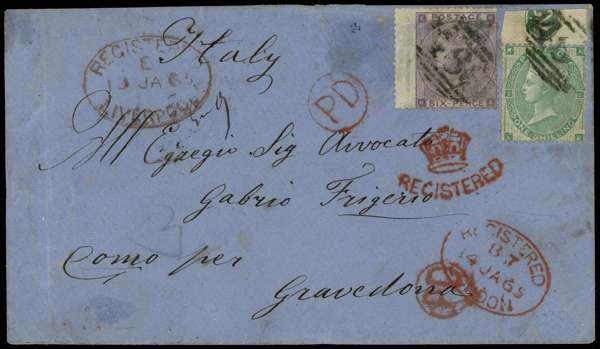 Italy
REGISTERED
E
13 JA 65
LIVERPOOL
PD
POSTAGE
SIX-PENCE
ONE SHILLING
All Egregio Sig Avvocato
REGISTERED
Gabrio Frigerio
Como per
Gravedona
REGISTERED
14 JA 65
LONDON